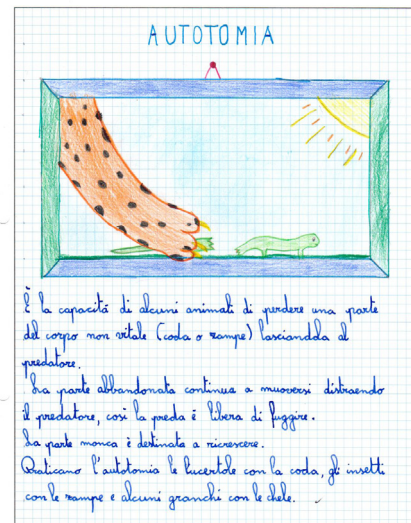 AUTOTOMIA
È la capacitá di alcuni animali di perdere una parte
del corpo non vitale (coda o zampe) lasciandola al
predatore.
La parte abbandonata continua a muoversi distraendo
il predatore, cosí la preda é libera di fuggire.
La parte monca è destinata a ricrescere.
Praticano l'autotomia le lucertole con la coda, gli insetti
con le zampe e alcuni granchi con le chele.